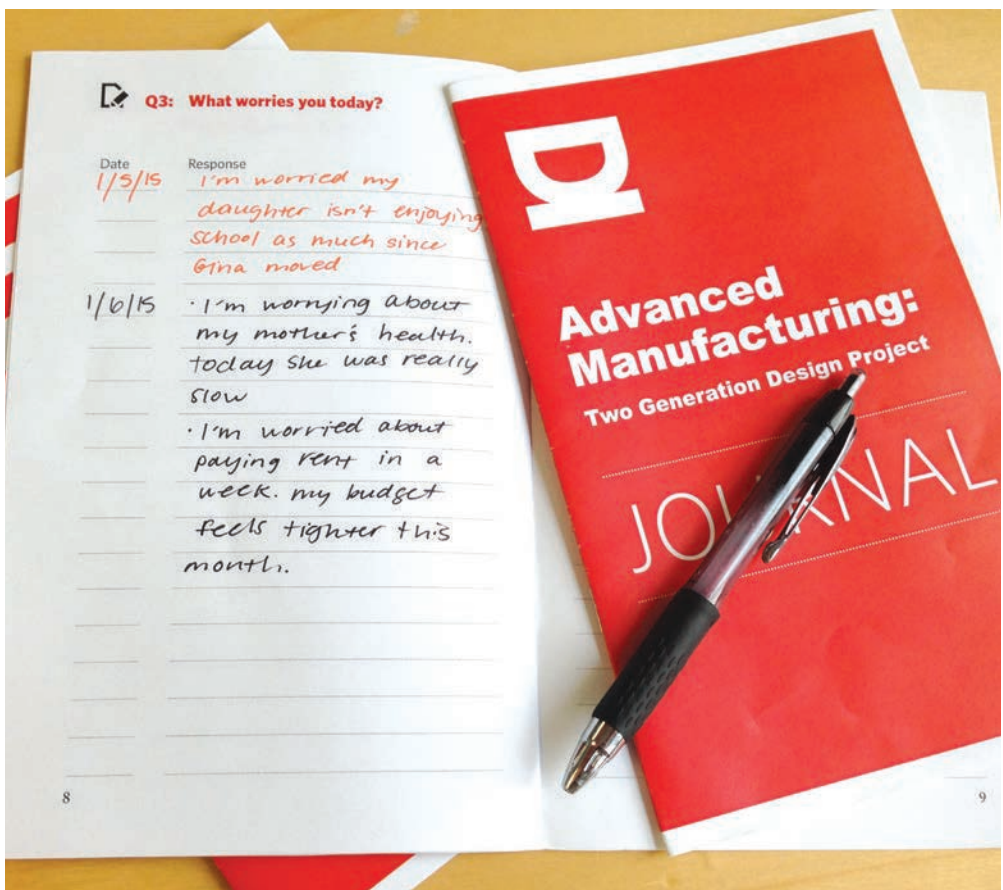 Q3: What worries you today?
Date Response
1/5/15 I'm worried my
daughter isn't enjoying
school as much since
Gina moved
1/6/15 · I'm worrying about
my mother's health.
today she was really
slow
· I'm worried about
paying rent in a
week. my budget
feels tighter this
month.
8
DI
Advanced
Manufacturing:
Two Generation Design Project
JOURNAL
9